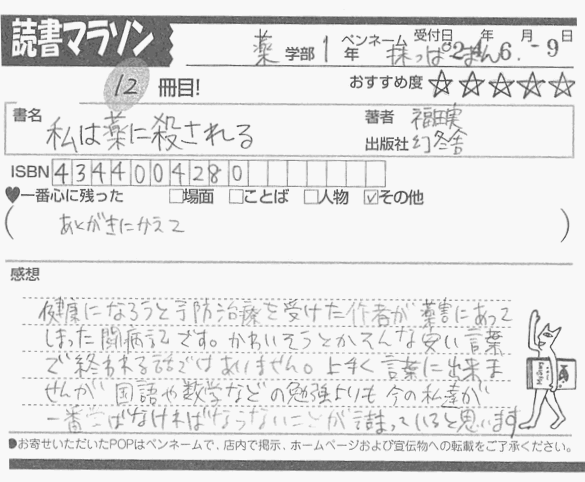 読書マラソン
薬 学部 1 年 ペンネーム 抹っぱまん 受付日 '04年 6月 -9日
12 冊目! おすすめ度 ☆☆☆☆☆
書名 私は薬に殺される
著者 福田実
出版社 幻冬舎
ISBN 4344004280
♥一番心に残った □場面 □ことば □人物 ☑その他
( あとがきにかえて )
感想
健康になろうと予防治療を受けた作者が薬害にあって
しまった闘病記です。かわいそうとかそんな安い言葉
で終われる話ではありません。上手く言葉に出来ま
せんが 国語や数学などの勉強よりも 今の私達が
一番学ばなければならないことが詰まっていると思います
●お寄せいただいたPOPはペンネームで、店内で掲示、ホームページおよび宣伝物への転載をご了承ください。